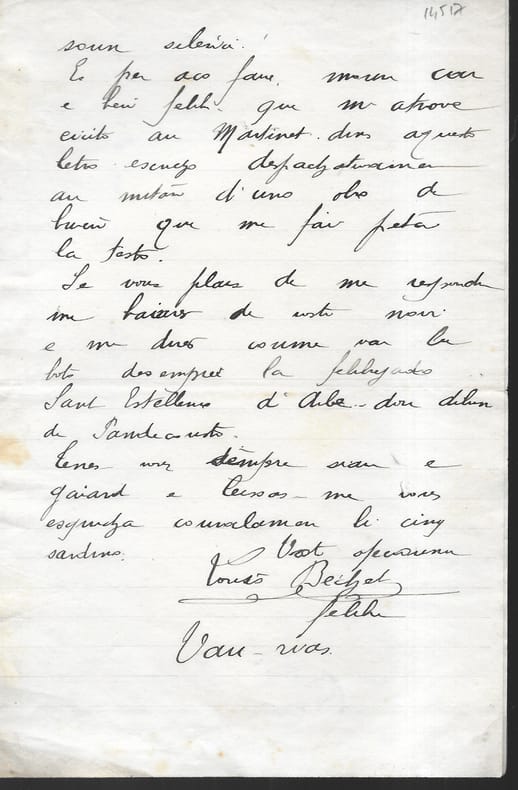 14517
soun silènci !
Es per aco faire, moun car
e bèu felibre que m'atrove
eicito au Martinet dins aquesto
letro escricho despachativamen
au mitan d'uno obro de
burèu que me fai peta
la testo.
Se vous plais de me respondre
me baiares de vosto nouvè
e me dires coume vai lou
bots desempiei la felibrejado
Sant Estellenco d'Arle dou dilun
de Pandecousto.
Tenes vous sempre sian e
gaiard e leissas-me vous
esquicha couralamen li cinq
sardino.
Vost
Louis Bechet
felibre
Vau-